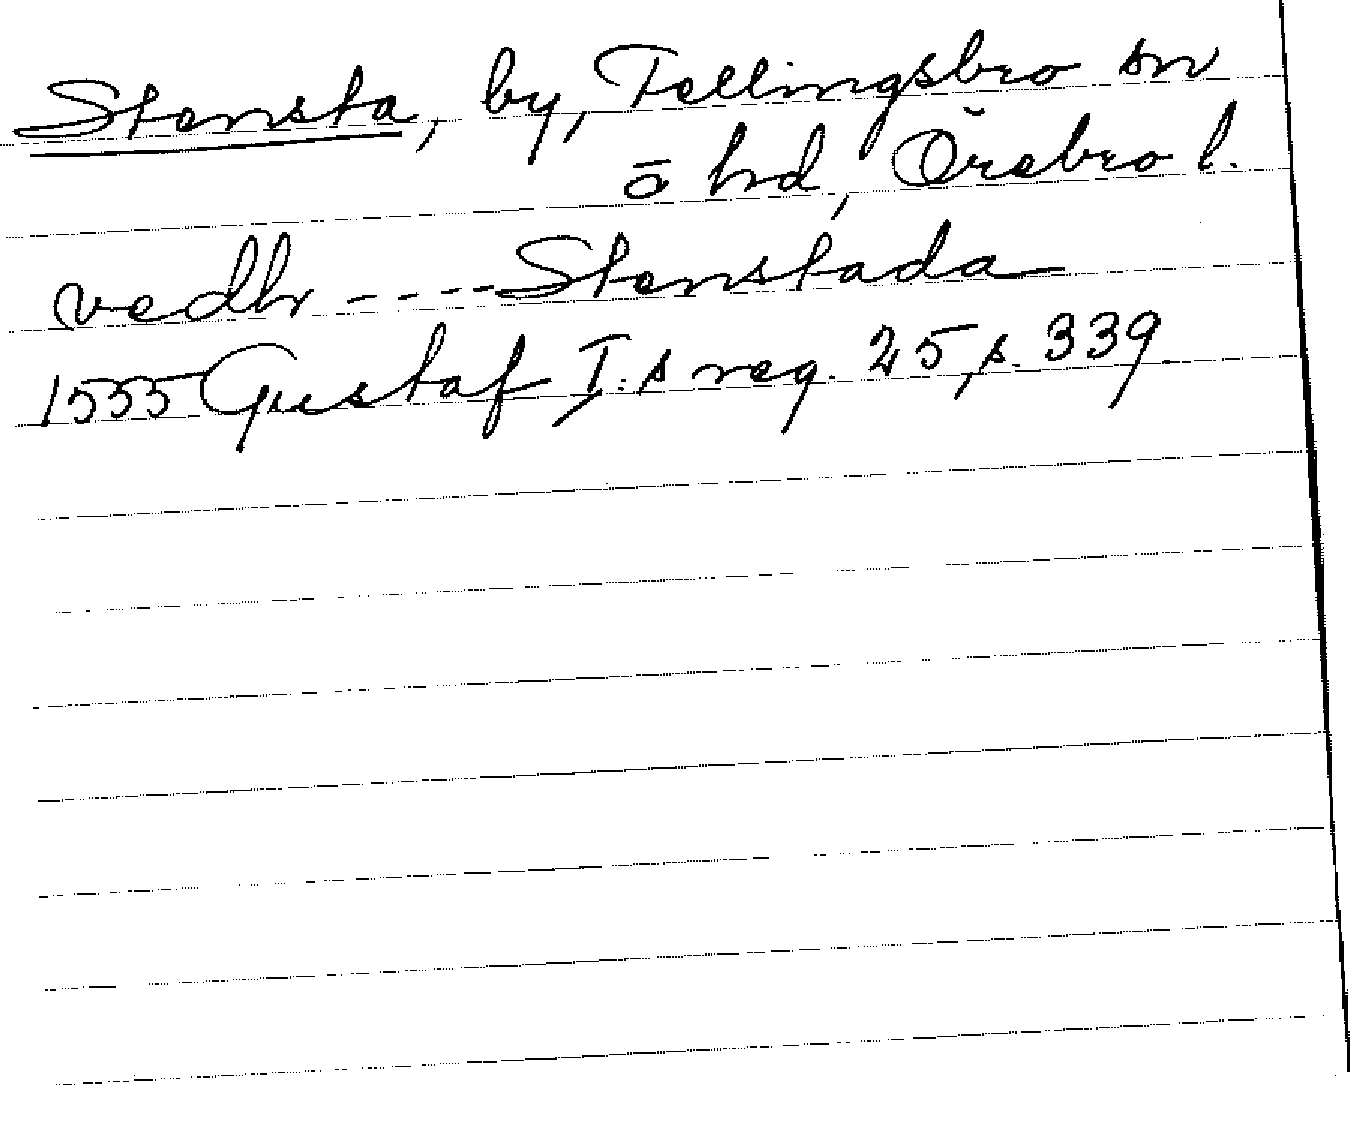 Stensta, by, Fellingsbro sn
o hrd, Örebro l.
vedhr ---- Stenstada
1555 Gustaf I:s reg. 25, s. 339